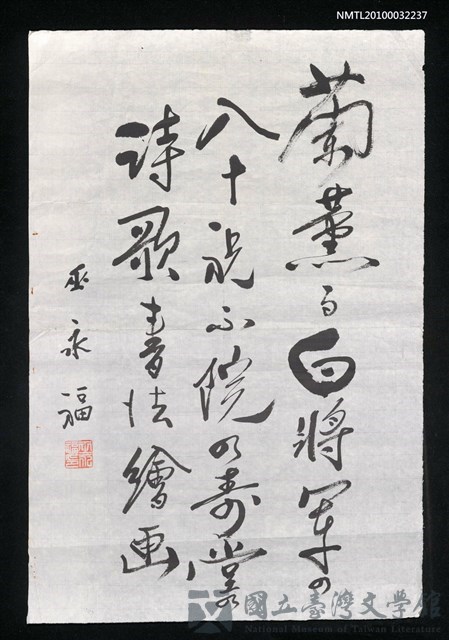 NMTL20100032237
蘭薰る白將軍の
八十祝ふ院の壽堂
詩歌書法繪画
巫永福
國立臺灣文學館
National Museum of Taiwan Literature